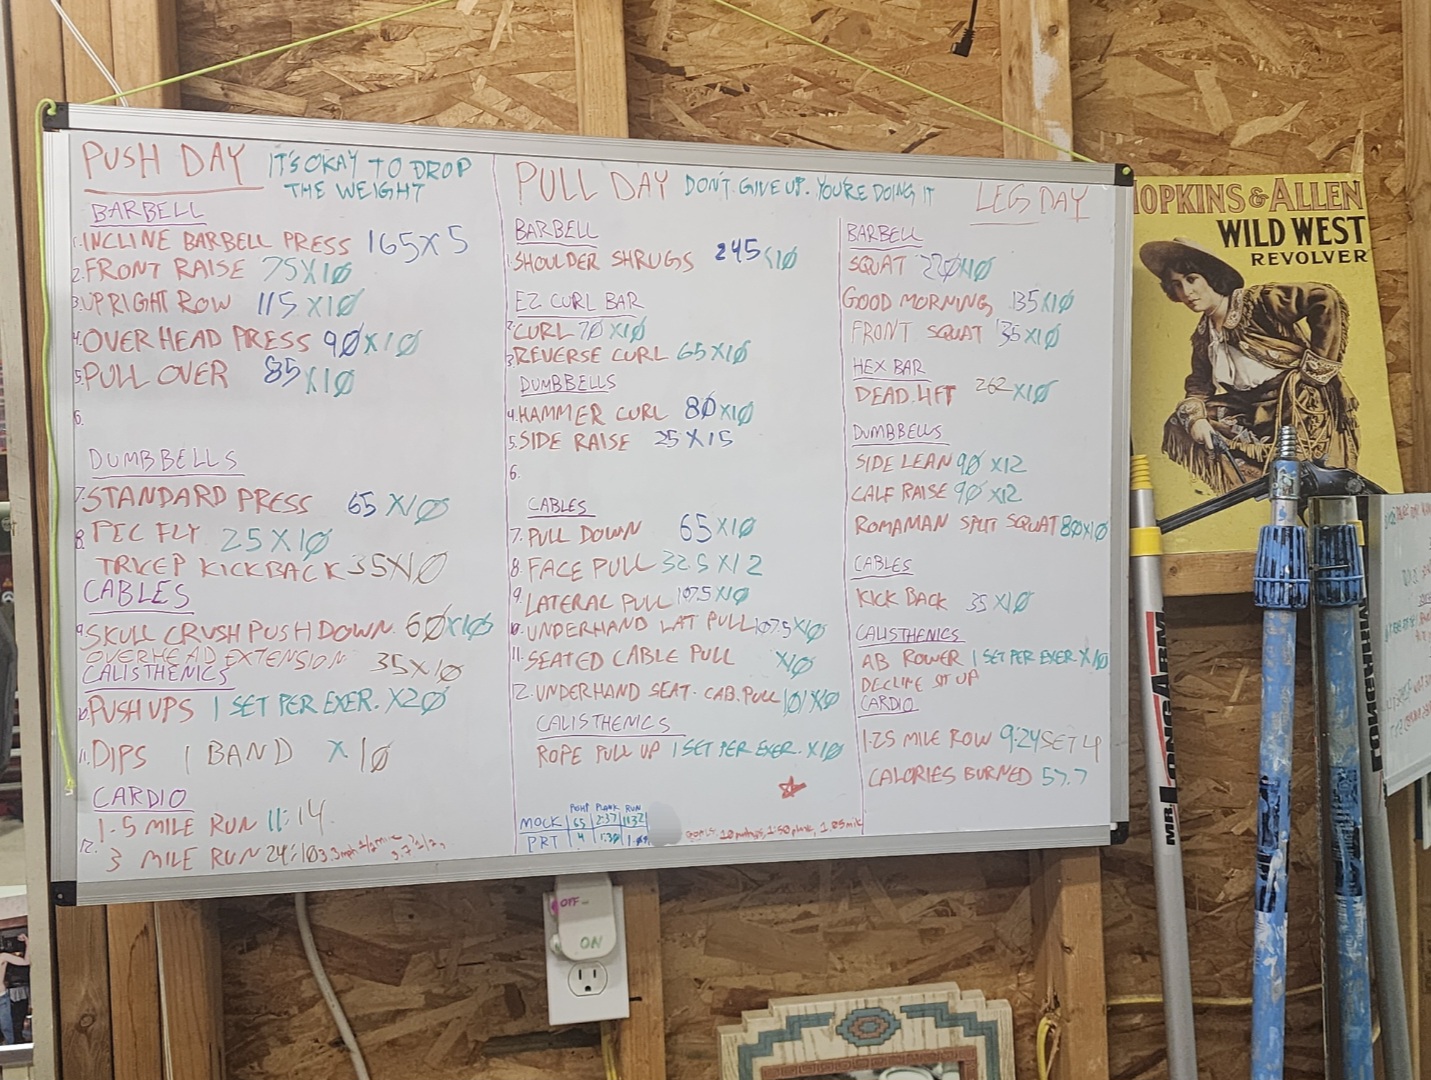 PUSH DAY IT'S OKAY TO DROP
THE WEIGHT
BARBELL
1. INCLINE BARBELL PRESS 165X5
2. FRONT RAISE 75X10
3. UPRIGHT ROW 115X10
4. OVER HEAD PRESS 90X10
5. PULL OVER 85X10
6.
DUMBBELLS
7. STANDARD PRESS 65X10
8. PEC FLY 25X10
TRICEP KICKBACK 35X10
CABLES
9. SKULL CRUSH PUSH DOWN 60X10
OVERHEAD EXTENSION 35X10
CALISTHENICS
10. PUSH UPS 1 SET PER EXER. X20
11. DIPS 1 BAND X10
CARDIO
1.5 MILE RUN 11:14
12. 3 MILE RUN 24:10
PULL DAY DON'T GIVE UP. YOU'RE DOING IT
BARBELL
1. SHOULDER SHRUGS 245X10
EZ CURL BAR
2. CURL 70X10
3. REVERSE CURL 65X10
DUMBBELLS
4. HAMMER CURL 80X10
5. SIDE RAISE 25X15
6.
CABLES
7. PULL DOWN 65X10
8. FACE PULL 32.5X12
9. LATERAL PULL 107.5X10
10. UNDERHAND LAT PULL 107.5X10
11. SEATED CABLE PULL X10
12. UNDERHAND SEAT. CAB. PULL X10
CALISTHENICS
ROPE PULL UP 1 SET PER EXER. X10
PUSH PLANK RUN
MOCK 65 2:37 1132
PRT
LEGS DAY
BARBELL
SQUAT X10
GOOD MORNING 135X10
FRONT SQUAT 135X10
HEX BAR
DEAD LIFT 262X10
DUMBBELLS
SIDE LEAN 90X12
CALF RAISE 90X12
ROMANIAN SPLIT SQUAT 80X10
CABLES
KICK BACK 35X10
CALISTHENICS
AB ROWER 1 SET PER EXER X10
DECLINE SIT UP
CARDIO
1.25 MILE ROW 9:24 SET 4
CALORIES BURNED 57.7
HOPKINS & ALLEN
WILD WEST
REVOLVER
MR. LONGARM
OFF
ON